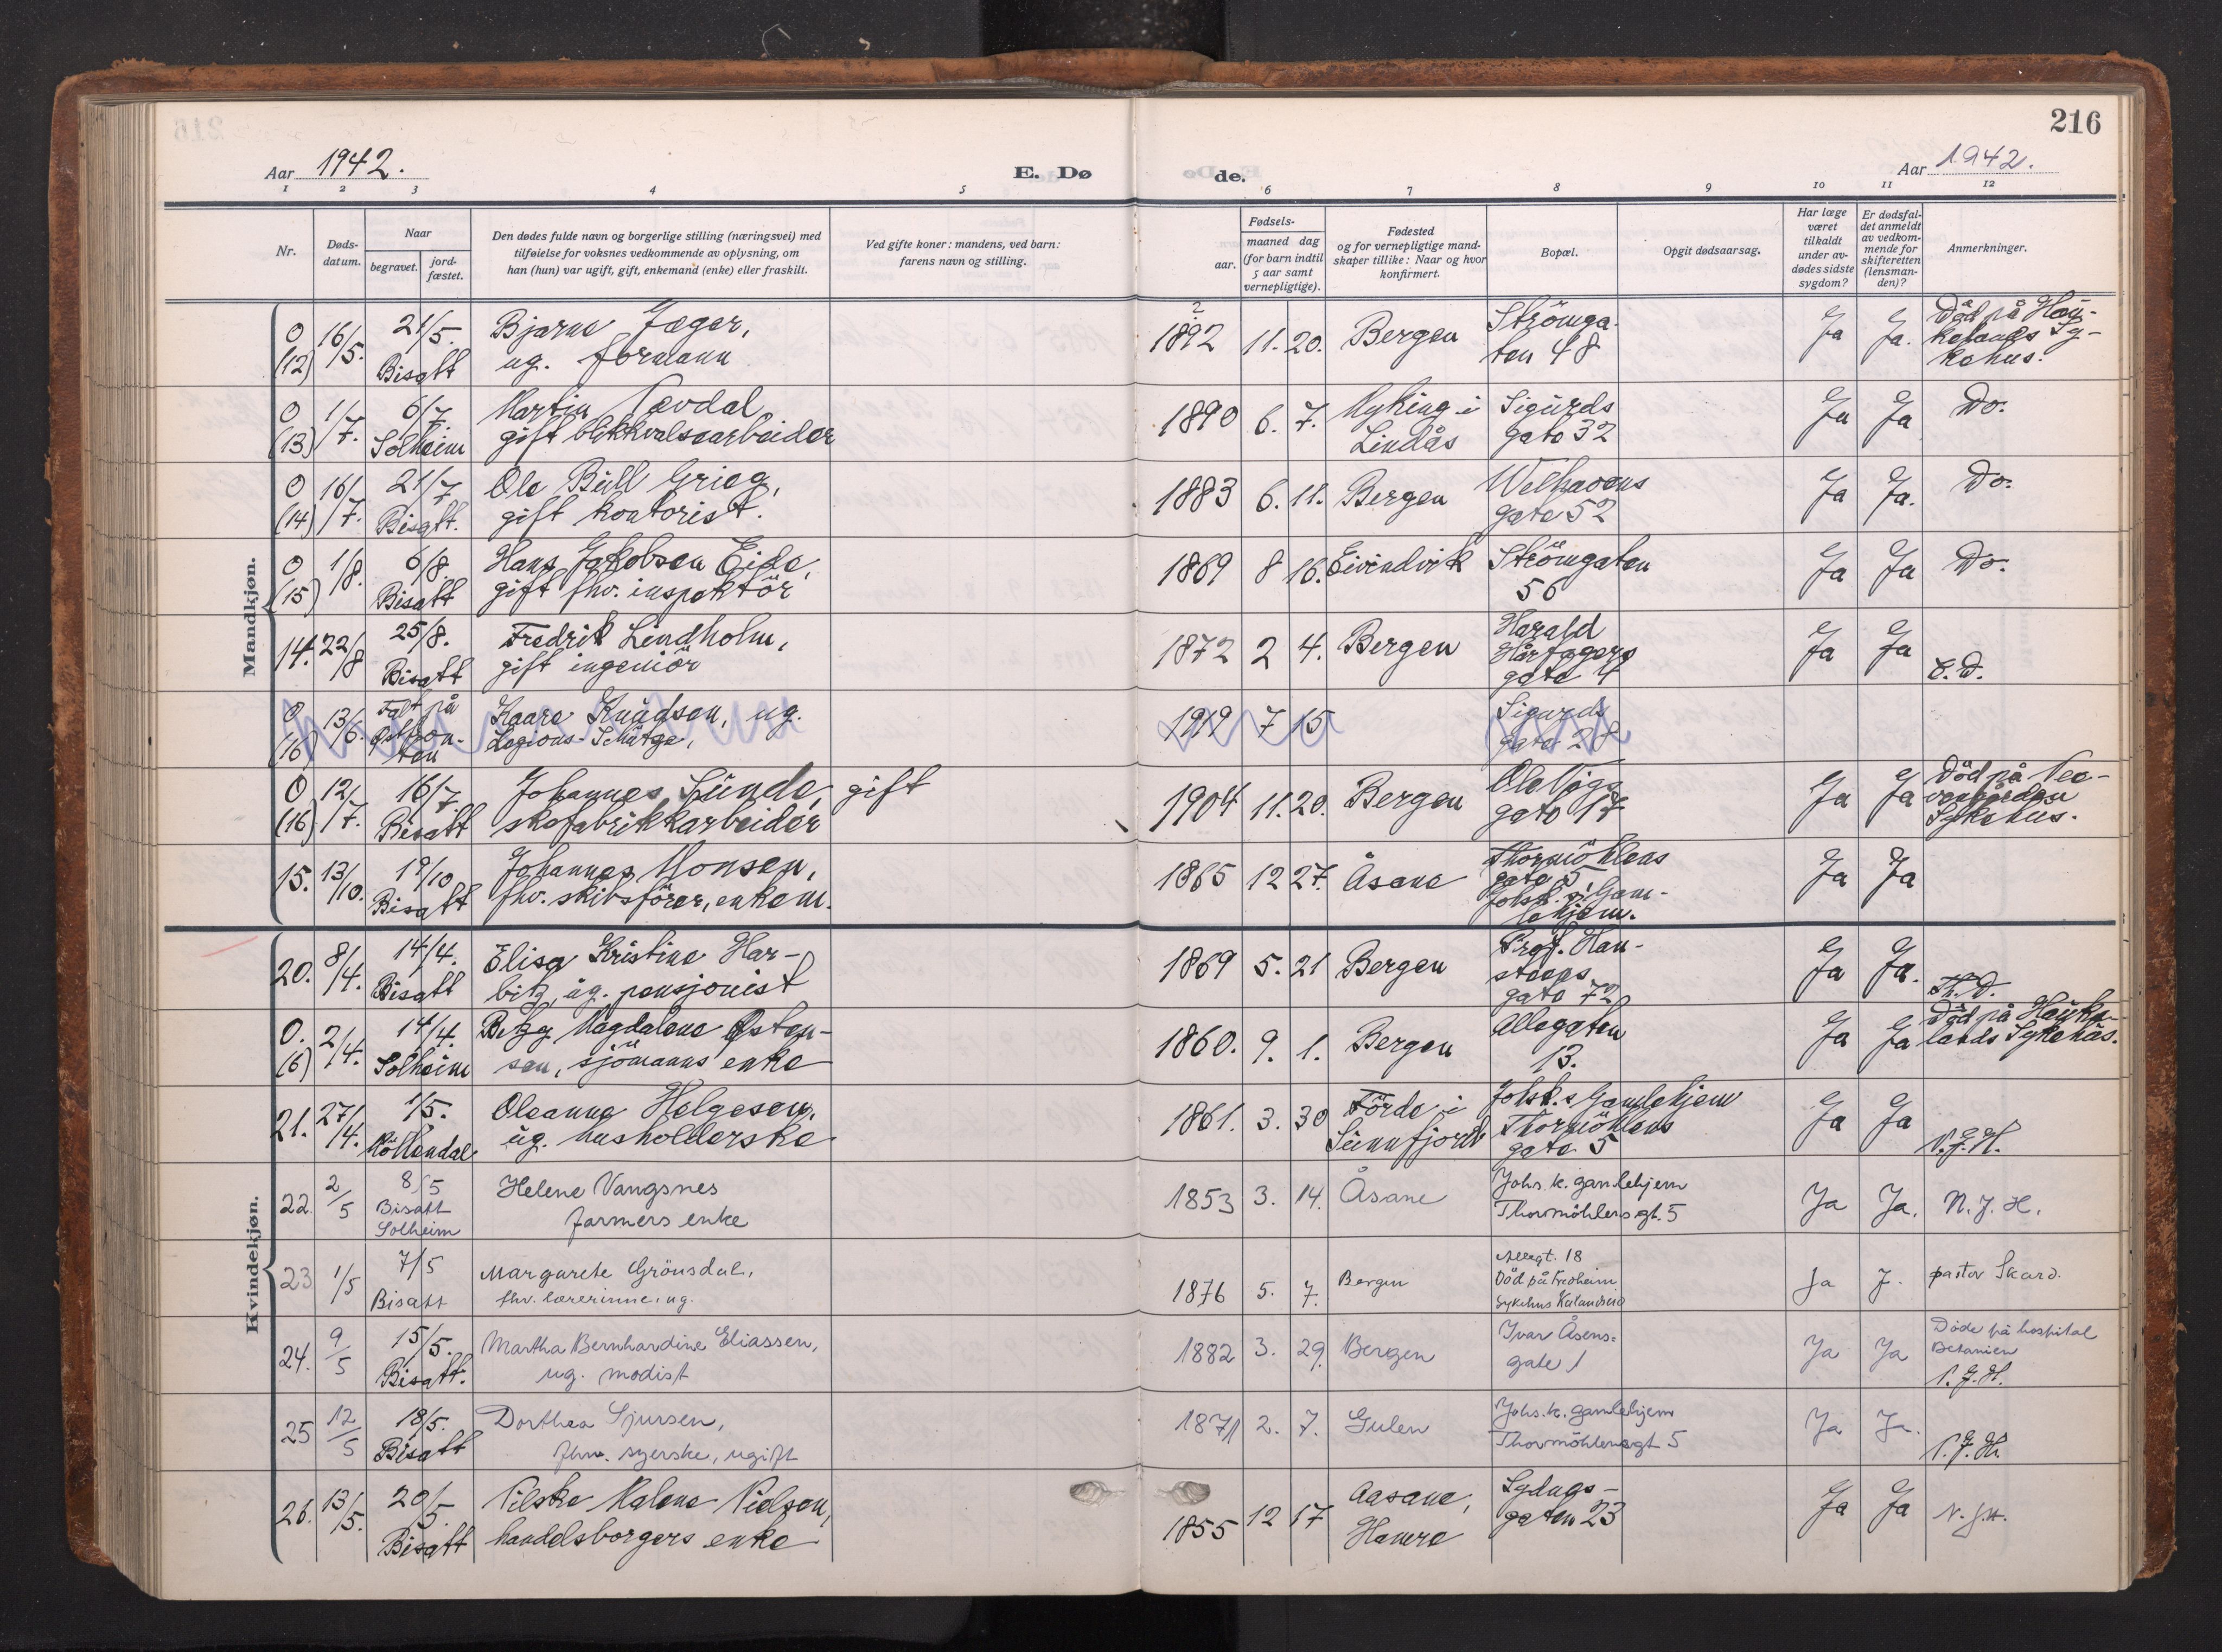 216
Aar 1942.
E. Døde.
Aar 1942.
1 2 3 4 5 6 7 8 9 10 11 12
Nr.
Døds-datum.
Naar
begravet.
jord-fæstet.
Den dødes fulde navn og borgerlige stilling (næringsvei) med
tilføielse for voksnes vedkommende av oplysning, om
han (hun) var ugift, gift, enkemand (enke) eller fraskilt.
Ved gifte koner: mandens, ved barn:
farens navn og stilling.
Fødsels-
aar.
maaned dag
(for barn indtil
5 aar samt
vernepligtige).
Fødested
og for vernepligtige mand-
skaper tillike: Naar og hvor
konfirmert.
Bopæl.
Opgit dødsaarsag.
Har læge
været
tilkaldt
under av-
dødes sidste
sygdom?
Er dødsfal-
det anmeldt
av vedkom-
mende for
skifteretten
(lensman-
den)?
Anmerkninger.
Mandkjøn.
0 (12) 16/5. 21/5. Bisatt
Bjarne Jæger,
ug. formann
? 1892 11. 20. Bergen
Strömga-
ten 48
Ja Ja.
Död på Hau-
kelands Sy-
kehus.
0 (13) 1/7. 6/7. Solheim
Martin Tævdal
gift blikkvalsearbeider
1890 6. 7. Myking i
Lindås
Sigurds
gate 32
Ja Ja Do.
0 (14) 16/7. 21/7 Bisatt.
Ole Bull Grieg,
gift kontorist.
1883 6. 11. Bergen
Welhavens
gate 52
Ja Ja. Do.
0 (15) 1/8. 6/8. Bisatt
Hans Jakobsen Eide,
gift fhv. inspektör
1869 8 16. Eivindvik
Strömgaten
56
Ja Ja Do.
14. 22/8 25/8. Bisatt
Fredrik Lindholm,
gift ingeniör
1872 2 4. Bergen
Harald
Hårfagers
gate 4
Ja Ja E. D.
0 (16) 13/6. Falt på
Östfron-
ten
Kaare Knudsen, ug.
Legions-Schütze,
1919 7 15
Sigurds
gate 28
0 (16) 12/7. 16/7 Bisatt
Johannes Lunde, gift
skofabrikkarbeider
1904 11. 20. Bergen
Ole Vigs
gate 17
Ja Ja
Död på Nee-
vengården
Sykehus.
15. 13/10. 19/10 Bisatt
Johannes Monsen,
fhv. skibsförer, enkem.
1865 12 27. Åsane
Thormöhlens
gate 5
Johsk.s Gam-
lehjem.
Ja Ja
Kvindekjøn.
20. 8/4. 14/4. Bisatt
Elisa Kristine Har-
bitz, ug. pensjonist
1869 5. 21 Bergen
Prof. Han-
steens
gate 72
Ja Ja. Th. D.
0. (6) 2/4. 14/4. Solheim
Magdalene Østen-
sen, sjömanns enke
1860. 9. 1. Bergen
Allegaten
13.
Ja Ja
Död på Hauke-
lands Sykehus.
21. 27/4. 1/5. Möllendal
Oleanna Helgesen,
ug. husholderske
1861. 3. 30 Förde i
Sunnfjord
Johsk.s Gamlehjem
Thormöhlens
gate 5
Ja Ja N. J. H.
22. 2/5 8/5 Bisatt Solheim
Helene Vangsnes
farmers enke
1853 3. 14. Åsane
Johs. k. gamlehjem
Thormöhlens gt. 5
Ja Ja. N. J. H.
23 1/5 7/5 Bisatt
Margarete Grönsdal,
fhv. lærerinne, ug.
1876 5. 7. Bergen
Allegt. 18
Död på Fredheim
Sykehus Kalandseid
Ja J. pastor Skard.
24. 9/5 15/5. Bisatt.
Martha Bernhardine Eliassen,
ug. modist
1882 3. 29. Bergen
Ivar Åsens-
gate 1
Ja Ja
Döde på hospital
Betanien
N. J. H.
25 12/5 18/5. Bisatt
Dorthea Sjursen,
fhv. syerske, ugift
1871 2. 7. Gulen
Johs. k. gamlehjem
Thormöhlensgt 5
Ja Ja. N. J. H.
26. 13/5. 20/5. Bisatt
Nilske Malene Nielsen,
handelsborgers enke
1855 12 17 Aasane,
Hamre
Sydnes-
gaten 23
Ja Ja N. J. H.